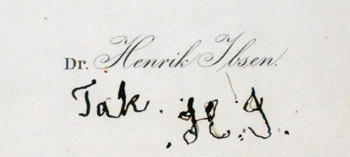 Dr. Henrik Ibsen.
Tak. H. I.